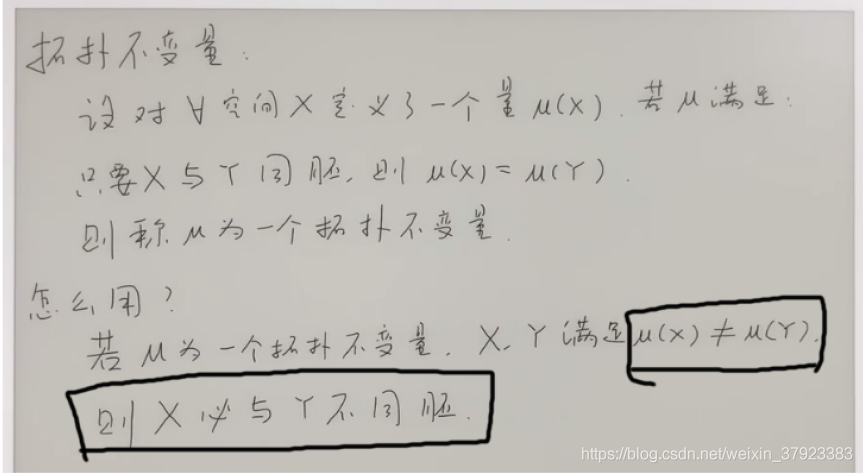 拓扑不变量:
设对∀空间X定义了一个量μ(X).若μ满足:
只要X与Y同胚,则μ(X)=μ(Y).
则称μ为一个拓扑不变量.
怎么用?
若μ为一个拓扑不变量.X、Y满足μ(X)≠μ(Y).
则X必与Y不同胚.
https://blog.csdn.net/weixin_37923383